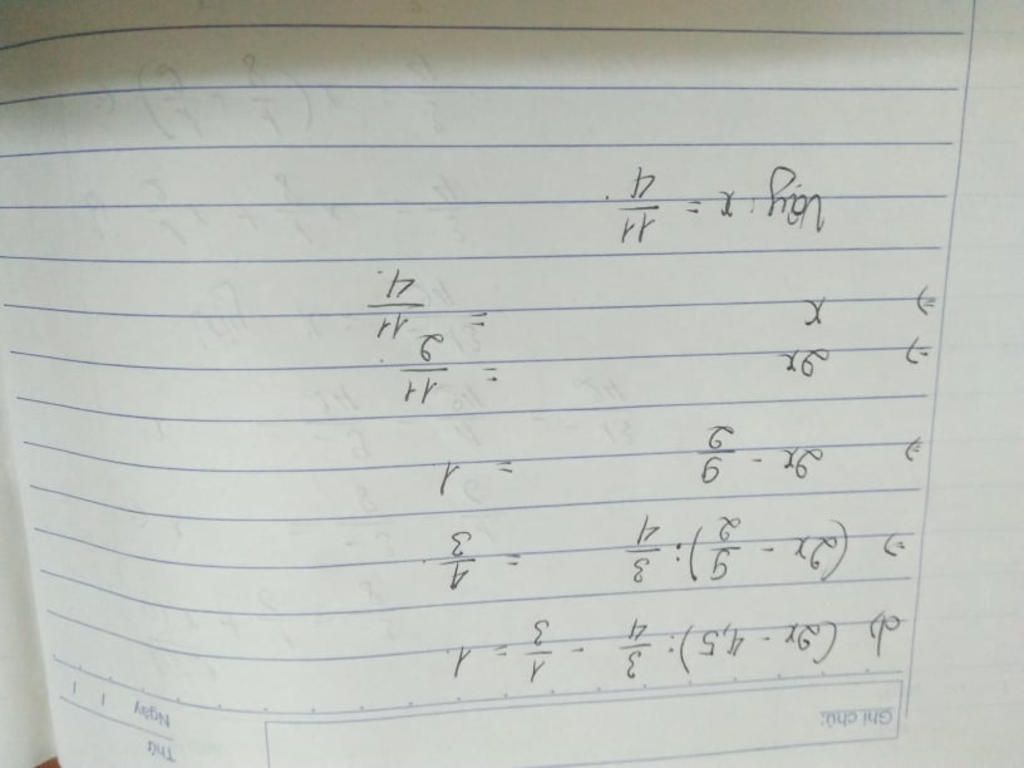 Ghi chú:
Thứ
Ngày / /
d) (2x - 4,5) : 3/4 - 1/3 = 1.
=> (2x - 9/2) : 3/4 = 4/3.
=> 2x - 9/2 = 1
=> 2x = 11/2.
=> x = 11/4.
Vậy: x = 11/4.